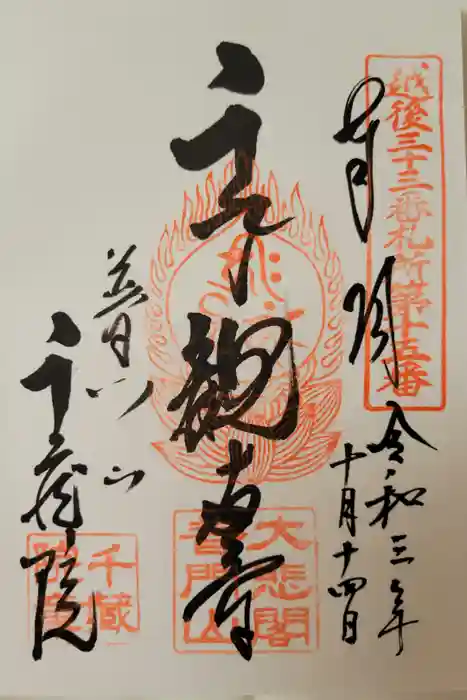 越後三十三番札所第十五番
奉拝
令和三年
十月十四日
観
大悲閣
普門山
普門山
千蔵院
千蔵